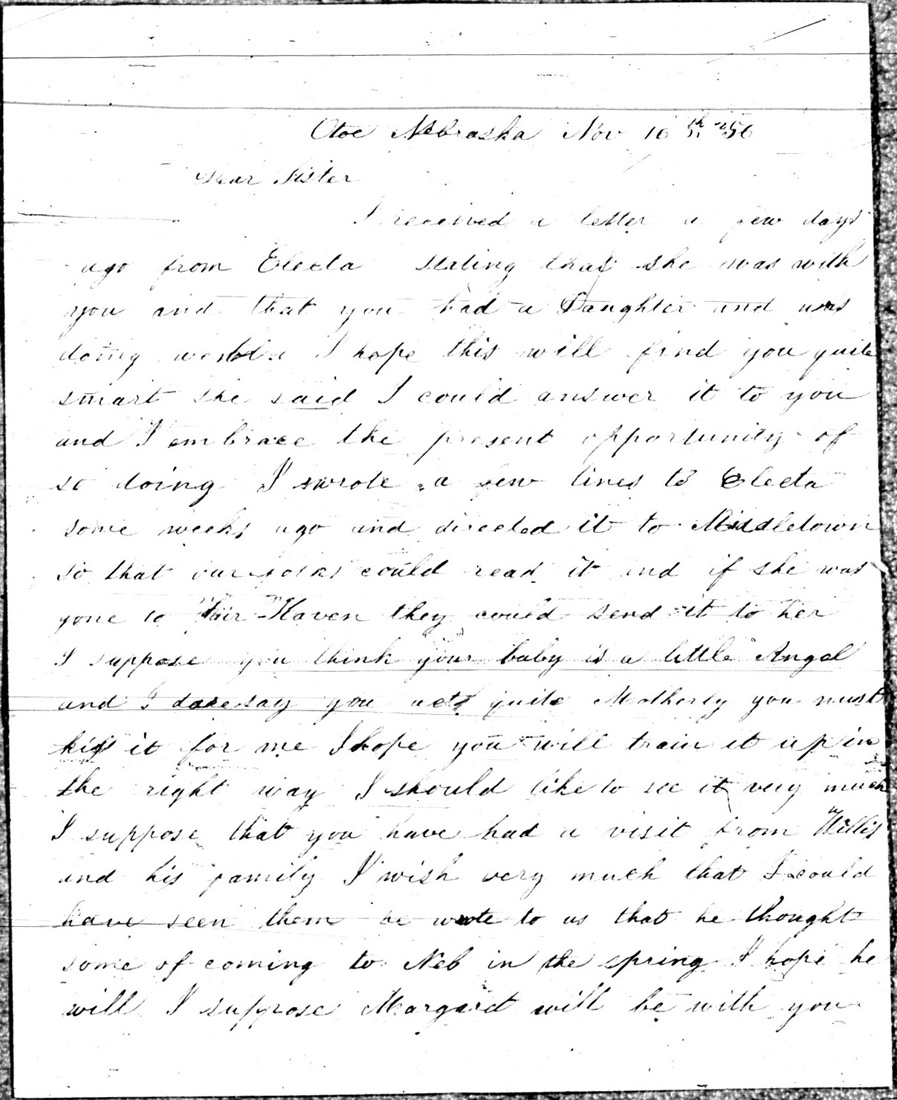 Otoe Nebraska Nov 16th 56
Dear Sister
I received a letter a few days
ago from Electa stating that she was with
you and that you had a Daughter and was
doing I hope this will find you quite
smart she said I could answer it to you
and I embrace the present opportunity of
so doing I wrote a few lines to Electa
some weeks ago and directed it to Middletown
so that our folks could read it and if she was
gone to Fair Haven they could send it to her
I suppose you think your baby is a little Angel
and I dare say you act quite Motherly you must
kiss it for me I hope you will train it up in
the right way I should like to see it very much
I suppose that you have had a visit from Willis
and his family I wish very much that I could
have seen them he wrote to us that he thought
some of coming to Neb in the spring I hope he
will I suppose Margaret will be with you